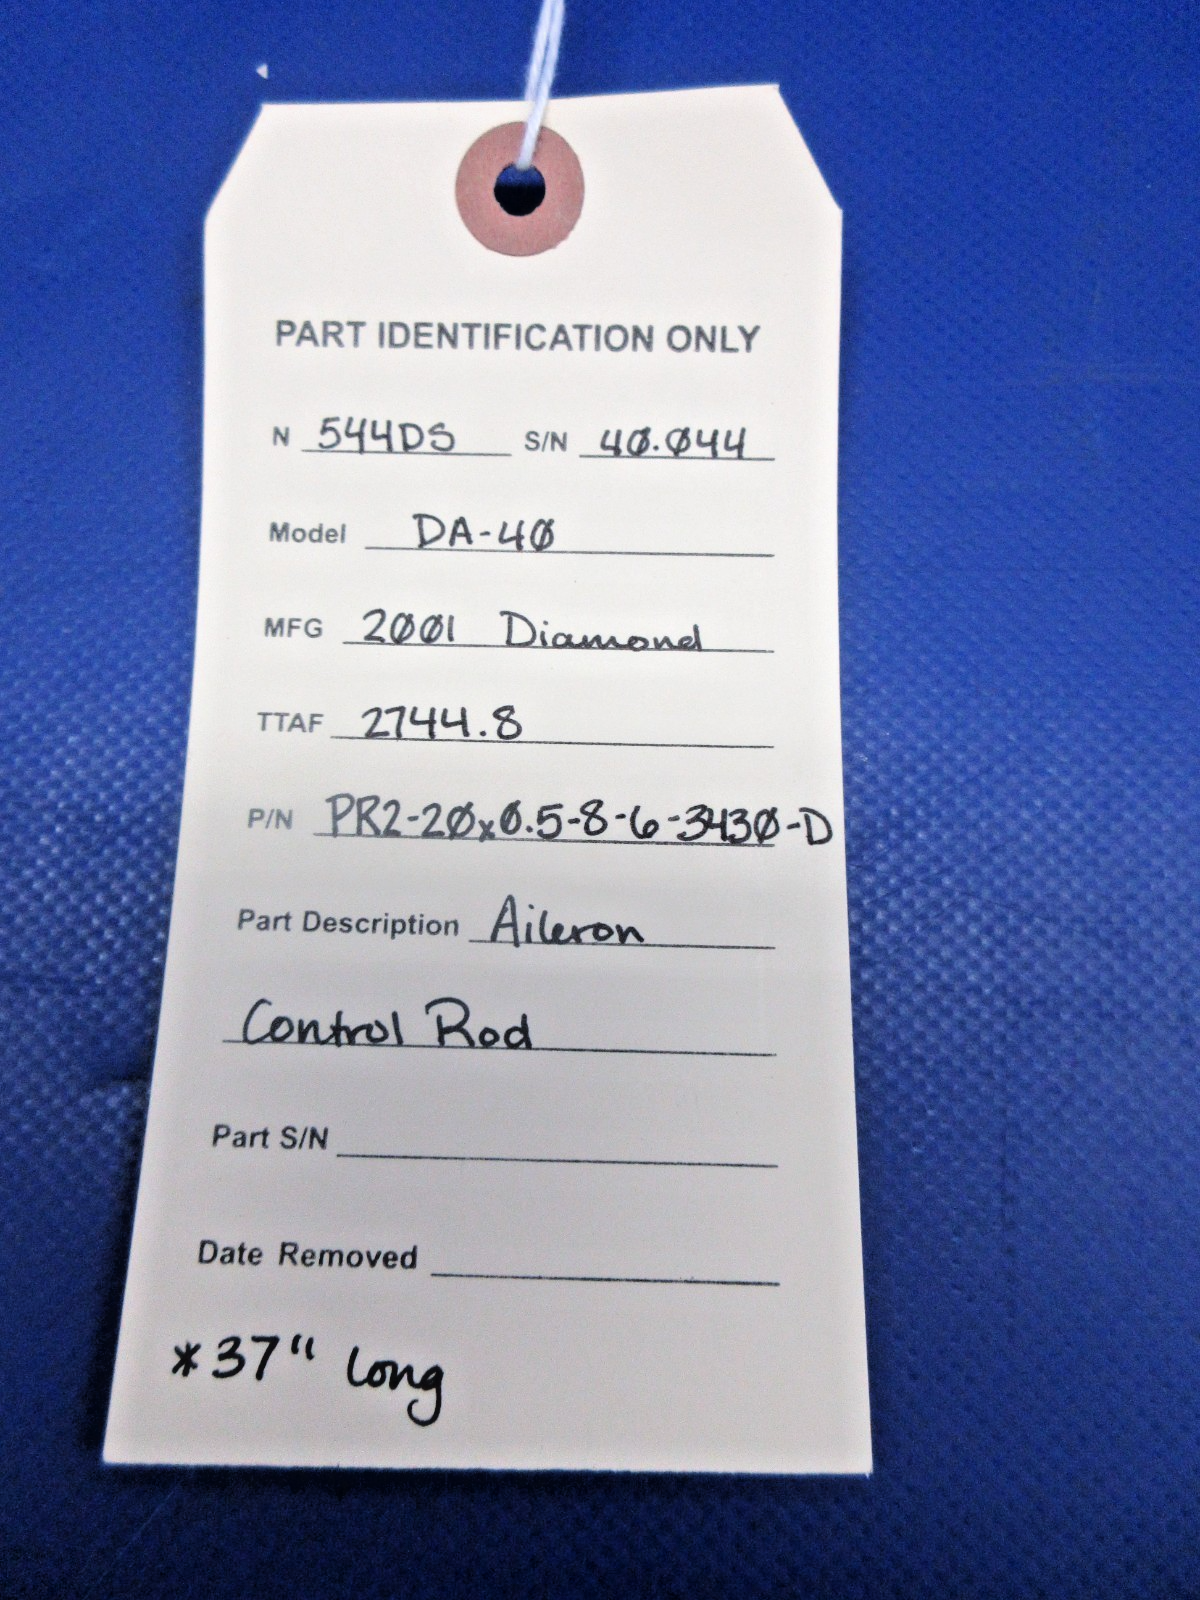 PART IDENTIFICATION ONLY
N 544DS S/N 40.044
Model DA-40
MFG 2001 Diamond
TTAF 2744.8
P/N PR2-20x0.5-8-6-3430-D
Part Description Aileron
Control Rod
Part S/N
Date Removed
*37" long